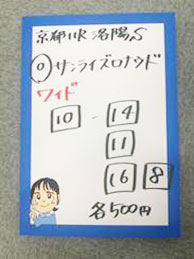 京都11R 洛陽S
◎サンライズロナウド
ワイド
10 - 14
11
16 8
各500円